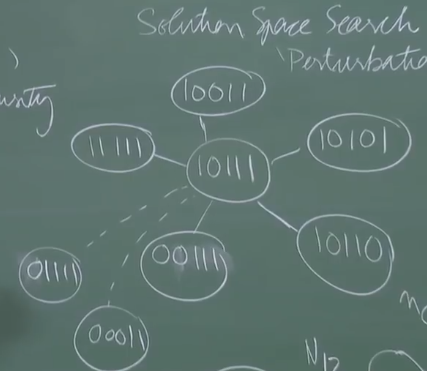 Solution Space Search
'Perturbatio
)
10011
11111
10111
10101
01111
00111
10110
00011
N12